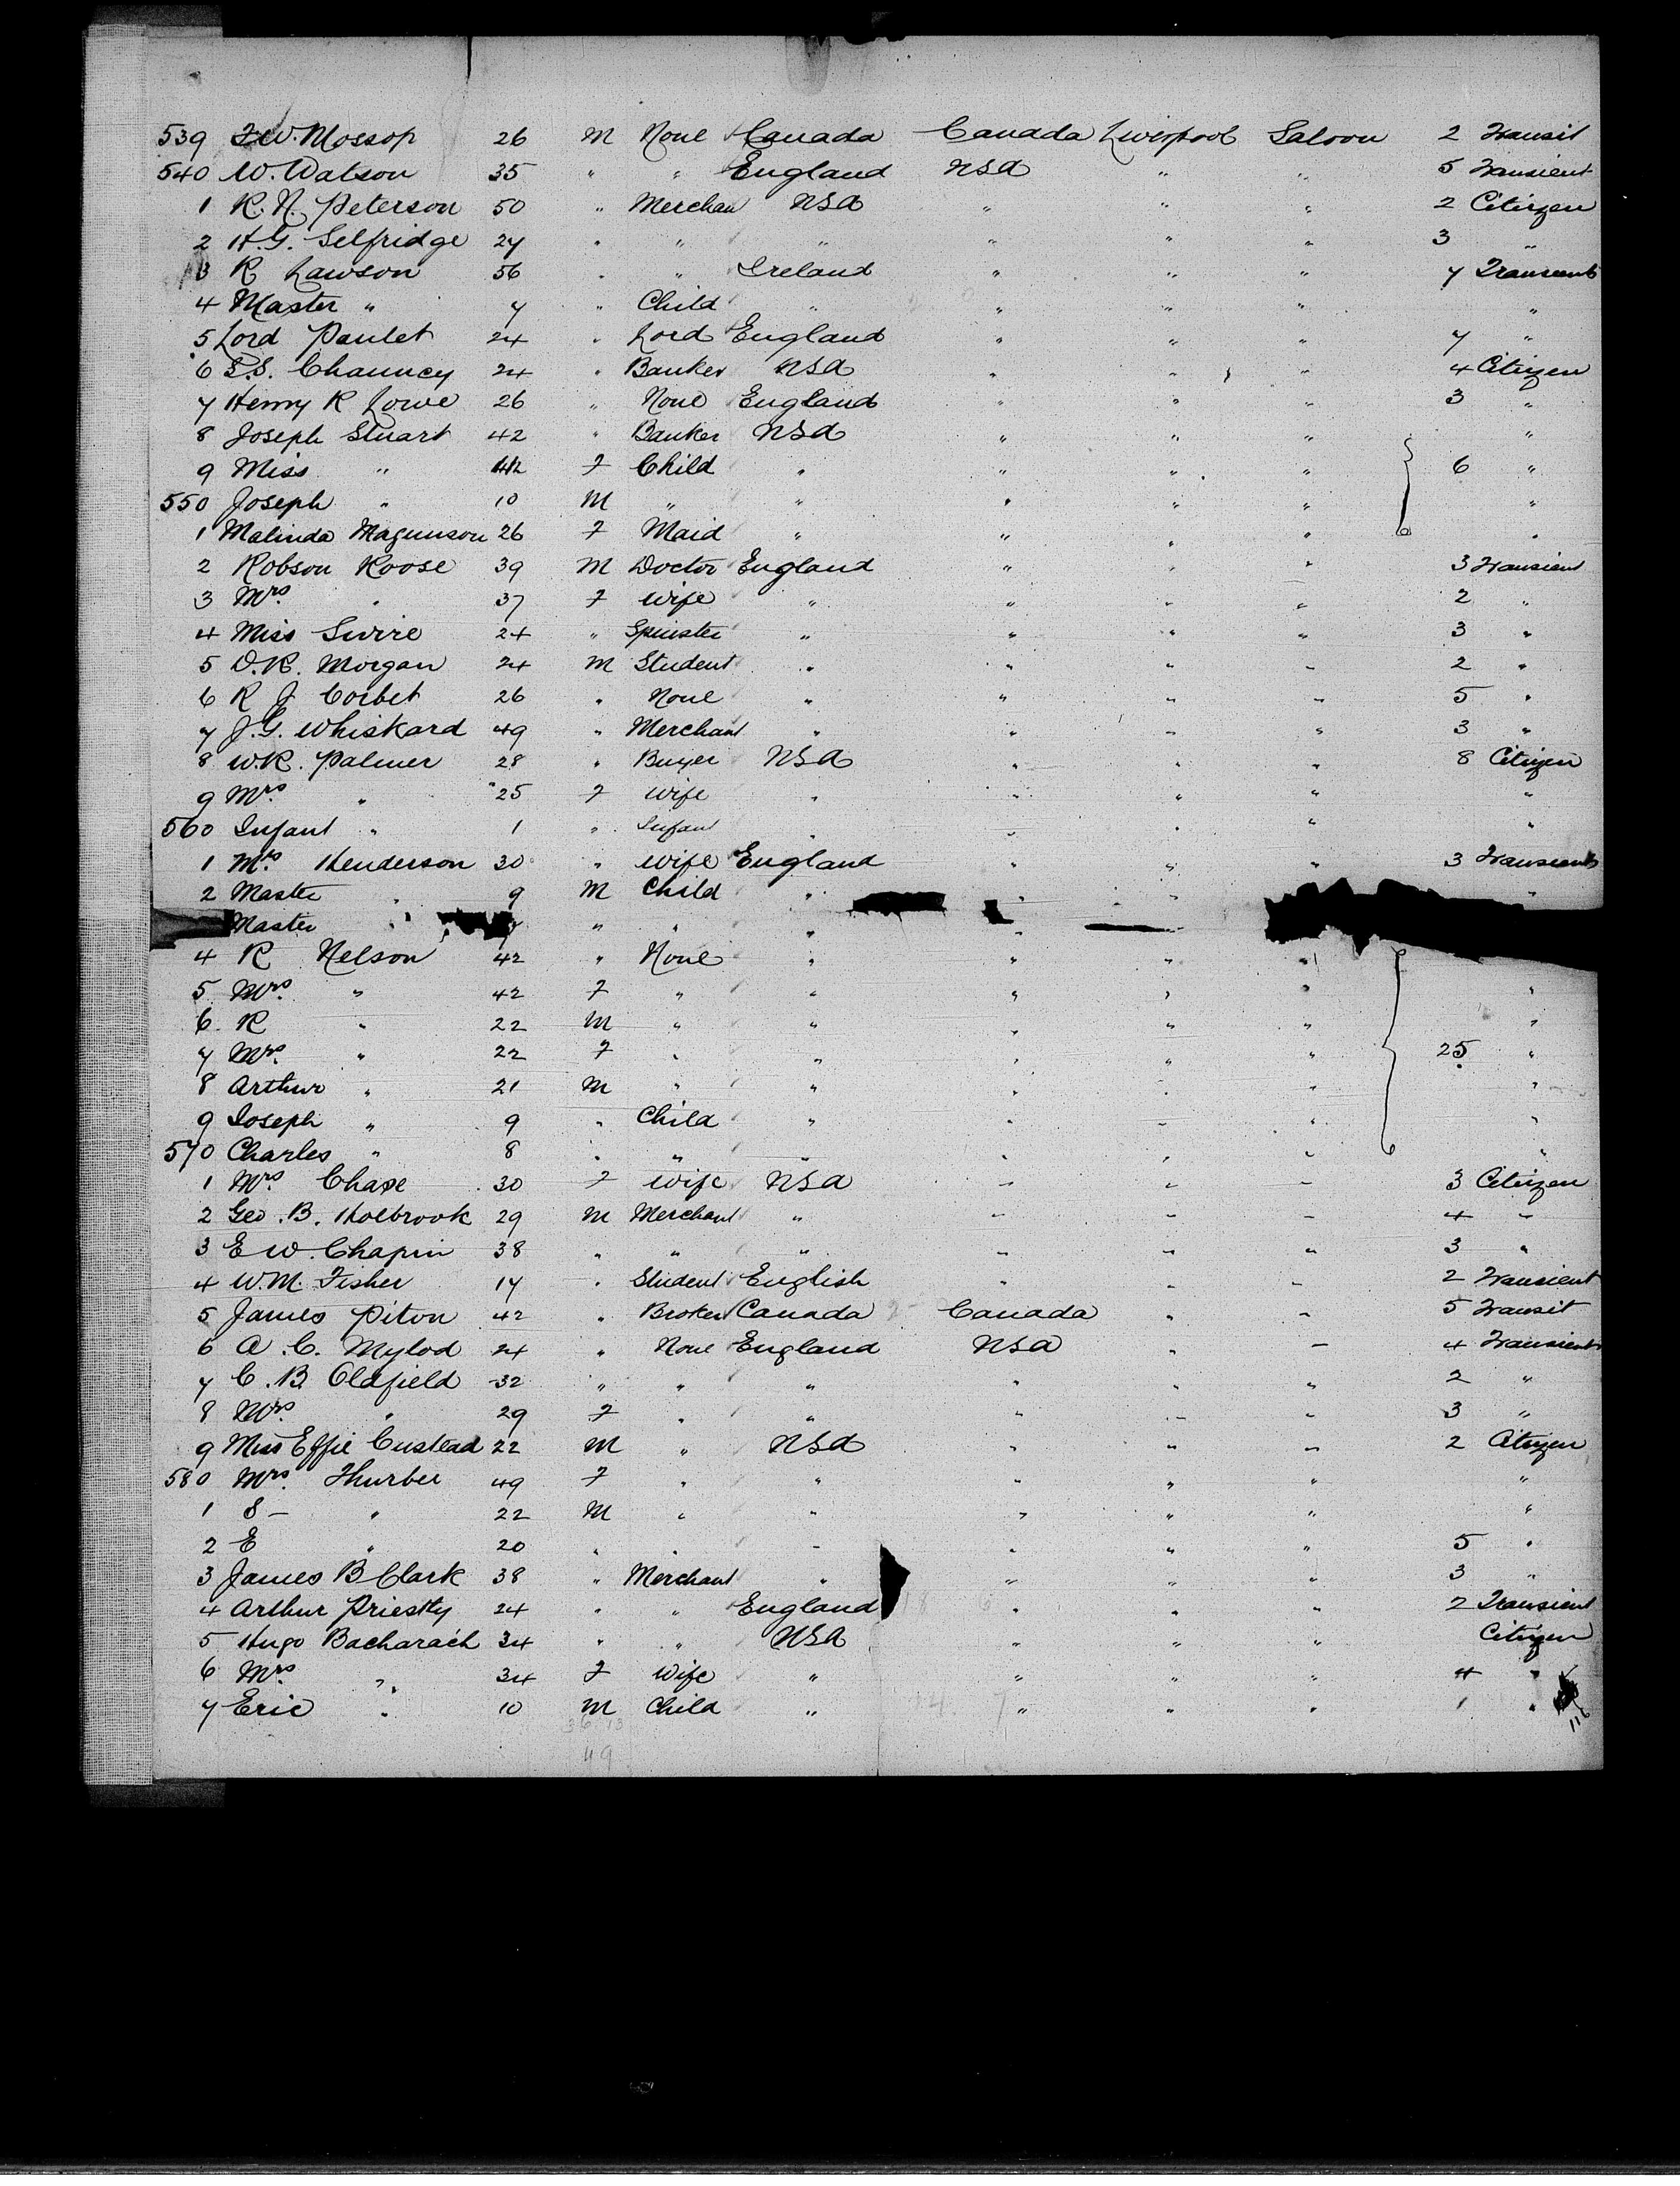 539 F.W. Mossop 26 M None Canada Canada Liverpool Saloon 2 Transit
540 W. Watson 35 " " England USA " " 5 Transient
1 R.N. Peterson 50 " Merchan USA " " " 2 Citizen
2 H.G. Selfridge 27 " " " " " " 3 "
3 R Lawson 56 " " Ireland " " " 7 Transient
4 Master " 7 " Child " " " " "
5 Lord Paulet 24 " Lord England " " " 7 "
6 S.S. Chauncey 24 " Banker USA " " " 4 Citizen
7 Henry R Lowe 26 " None England " " " 3 "
8 Joseph Stuart 42 " Banker USA " " " "
9 Miss " F Child " " " " 6 "
550 Joseph " 10 M " " " " " "
1 Malinda Magunson 26 F Maid " " " " "
2 Robson Roose 39 M Doctor England " " " 3 Transient
3 Mrs " 37 F Wife " " " " 2 "
4 Miss Swire 24 " Spinster " " " " 3 "
5 D.R. Morgan 24 M Student " " " " 2 "
6 R J Corbet 26 " None " " " " 5 "
7 J.G. Whiskard 49 " Merchant " " " " 3 "
8 W.R. Palmer 28 " Buyer USA " " " 8 Citizen
9 Mrs " 25 F Wife " " " " "
560 Infant " 1 " Infant " " " " "
1 Mrs Henderson 30 " Wife England " " " 3 Transient
2 Master " 9 M Child " " " "
Master " " " " "
4 R Nelson 42 " None " " " "
5 Mrs " 42 F " " " " " "
6 R " 22 M " " " " " "
7 Mrs " 22 F " " " " " 25 "
8 Arthur " 21 M " " " " " "
9 Joseph " 9 " Child " " " " "
570 Charles " 8 " " " " " " "
1 Mrs Chase 30 F Wife USA " " " 3 Citizen
2 Geo. B. Holbrook 29 M Merchant " " " " 4 "
3 E W. Chapin 38 " " " " " " 3 "
4 W.M. Fisher 17 " Student English " " " 2 Transient
5 James Piton 42 " Broker Canada Canada " " 5 Transit
6 A.C. Mylod 24 " None England USA " " 4 Transient
7 C.B. Oldfield 32 " " " " " " 2 "
8 Mrs " 29 F " " " " " 3 "
9 Miss Effie Custead 22 M " USA " " " 2 Citizen
580 Mrs. Thurber 49 F " " " " " "
1 S - " 22 M " " " " " "
2 E " 20 " " " " " " 5 "
3 James B Clark 38 " Merchant " " " " 3 "
4 Arthur Priestly 24 " " England " " " 2 Transient
5 Hugo Bacharach 34 " " USA " " " Citizen
6 Mrs " 34 F Wife " " " " 4 "
7 Eric " 10 M Child " " " " 1 "
116
36 13
49